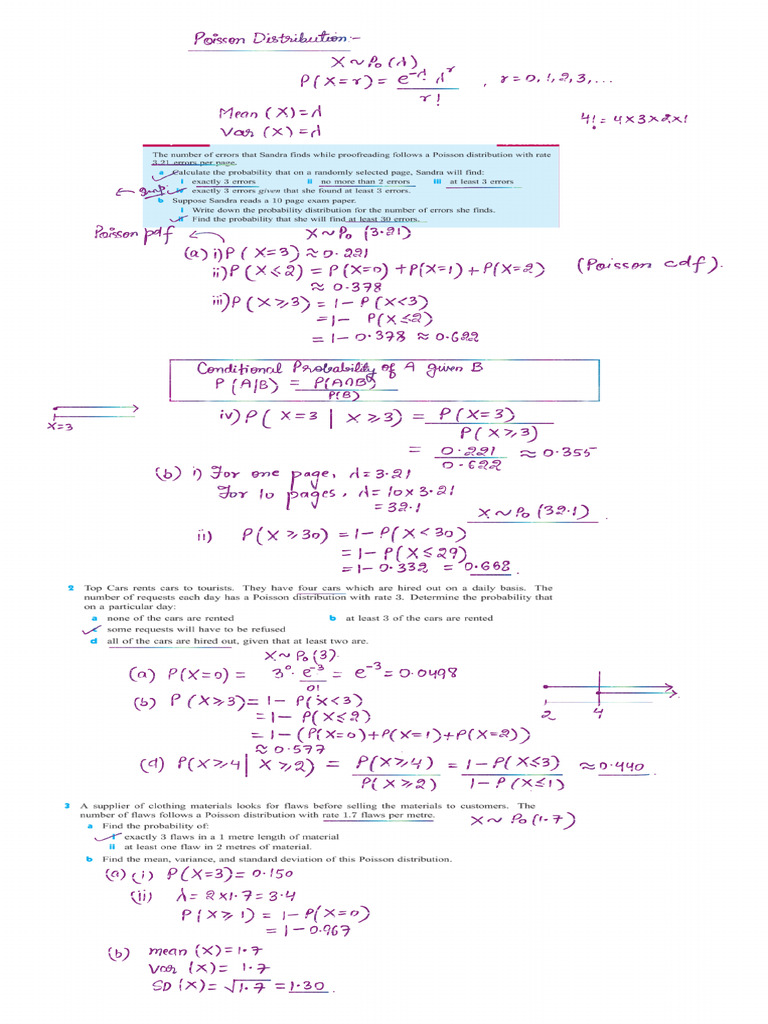 Poisson Distribution:-
X ~ Po (λ)
P(X=r) = e^-λ λ^r / r! , r = 0, 1, 2, 3, ...
Mean (X) = λ
Var (X) = λ
4! = 4×3×2×1
The number of errors that Sandra finds while proofreading follows a Poisson distribution with rate
3.21 errors per page.
a Calculate the probability that on a randomly selected page, Sandra will find:
i exactly 3 errors ii no more than 2 errors iii at least 3 errors
iv exactly 3 errors given that she found at least 3 errors.
b Suppose Sandra reads a 10 page exam paper.
i Write down the probability distribution for the number of errors she finds.
ii Find the probability that she will find at least 30 errors.
Poisson pdf X ~ Po (3.21)
(a) i) P(X=3) ≈ 0.221
ii) P(X≤2) = P(X=0) + P(X=1) + P(X=2) (Poisson cdf).
≈ 0.378
iii) P(X≥3) = 1 - P(X<3)
= 1 - P(X≤2)
= 1 - 0.378 ≈ 0.622
Conditional Probability of A given B
P(A|B) = P(A∩B) / P(B)
X=3
iv) P(X=3 | X≥3) = P(X=3) / P(X≥3)
= 0.221 / 0.622 ≈ 0.355
(b) i) For one page, λ = 3.21
For 10 pages, λ = 10×3.21
= 32.1
X ~ Po (32.1)
ii) P(X≥30) = 1 - P(X<30)
= 1 - P(X≤29)
= 1 - 0.332 = 0.668.
2 Top Cars rents cars to tourists. They have four cars which are hired out on a daily basis. The
number of requests each day has a Poisson distribution with rate 3. Determine the probability that
on a particular day:
a none of the cars are rented b at least 3 of the cars are rented
c some requests will have to be refused
d all of the cars are hired out, given that at least two are.
X ~ Po (3).
(a) P(X=0) = 3^0 · e^-3 / 0! = e^-3 = 0.0498
(b) P(X≥3) = 1 - P(X<3)
= 1 - P(X≤2)
2 4
= 1 - (P(X=0) + P(X=1) + P(X=2))
≈ 0.577
(d) P(X≥4 | X≥2) = P(X≥4) / P(X≥2) = 1 - P(X≤3) / 1 - P(X≤1) ≈ 0.440
3 A supplier of clothing materials looks for flaws before selling the materials to customers. The
number of flaws follows a Poisson distribution with rate 1.7 flaws per metre.
X ~ Po (1.7)
a Find the probability of:
i exactly 3 flaws in a 1 metre length of material
ii at least one flaw in 2 metres of material.
b Find the mean, variance, and standard deviation of this Poisson distribution.
(a) (i) P(X=3) = 0.150
(ii) λ = 2×1.7 = 3.4
P(X≥1) = 1 - P(X=0)
= 1 - 0.967
(b) mean (X) = 1.7
Var (X) = 1.7
SD (X) = √1.7 = 1.30.